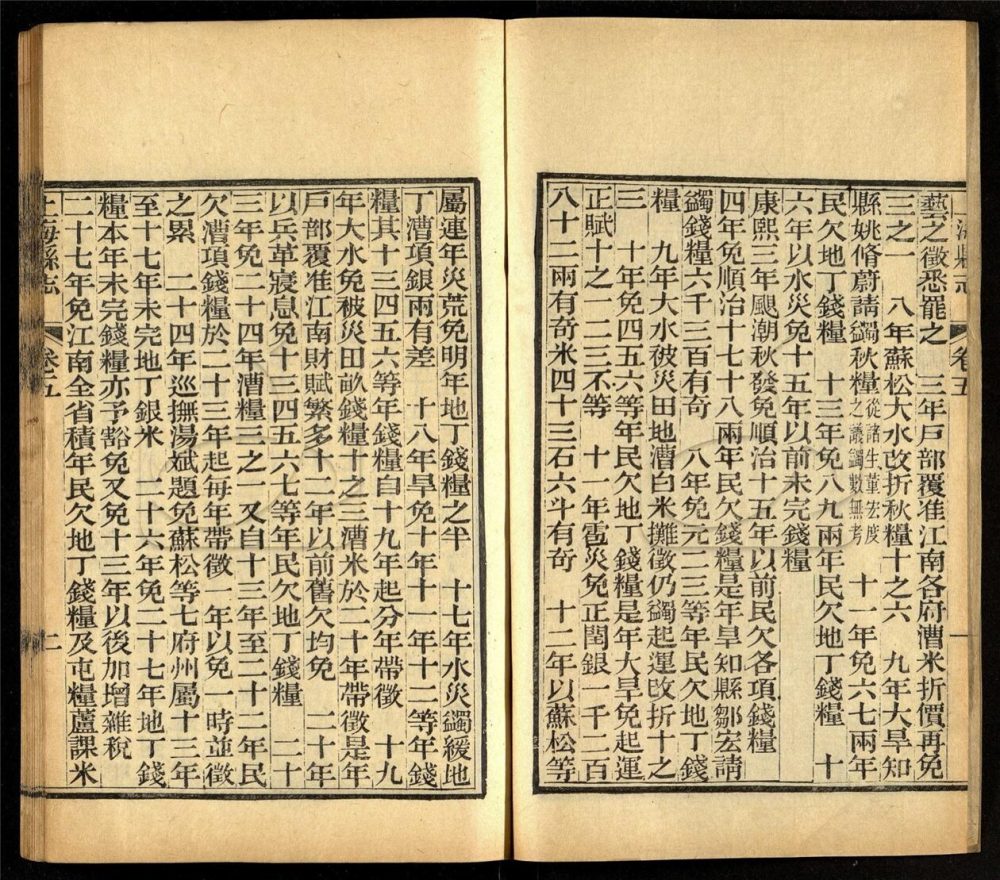 上海縣志 卷五 一
藝之徵悉罷之 三年戶部覆准江南各府漕米折價再免
三之一 八年蘇松大水改折秋糧十之六 九年大旱知
縣姚脩蔚請蠲秋糧從諸生董宏度之議蠲數無考 十一年免六七兩年
民欠地丁錢糧 十三年免八九兩年民欠地丁錢糧 十
六年以水災免十五年以前未完錢糧
康熙三年颶潮秋發免順治十五年以前民欠各項錢糧
四年免順治十七十八兩年民欠錢糧是年旱知縣鄒宏請
蠲錢糧六千三百有奇 八年免元二三等年民欠地丁錢
糧 九年大水被災田地漕白米攤徵仍蠲起運改折十之
三 十年免四五六等年民欠地丁錢糧是年大旱免起運
正賦十之一二三不等 十一年雹災免正閏銀一千二百
八十二兩有奇米四十三石六斗有奇 十二年以蘇松等
屬連年災荒免明年地丁錢糧之半 十七年水災蠲緩地
丁漕項銀兩有差 十八年旱免十年十一年十二等年錢
糧其十三四五六等年錢糧自十九年起分年帶徵 十九
年大水免被災田畝錢糧十之三漕米於二十年帶徵是年
戶部覆准江南財賦繁多十二年以前舊欠均免 二十年
以兵革寢息免十三四五六七等年民欠地丁錢糧 二十
三年免二十四年漕糧三之一又自十三年至二十二年民
欠漕項錢糧於二十三年起每年帶徵一年以免一時並徵
之累 二十四年巡撫湯斌題免蘇松等七府州屬十三年
至十七年未完地丁銀米 二十六年免二十七年地丁錢
糧本年未完錢糧亦予豁免又免十三年以後加增雜稅
二十七年免江南全省積年民欠地丁錢糧及屯糧蘆課米
上海縣志 卷五 二